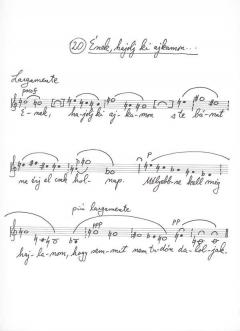 20 Ének, hajolj ki ajkamon...
Largamente
poco f
É-nek, ha-jolj ki aj-ka-mon s te bá-nat
p
ne érj el csak hol-nap. Mélyebb-re kell még
più largamente
ppp pp
haj-la-nom, hogy sem-mit nem tu-dón da-lol-jak.